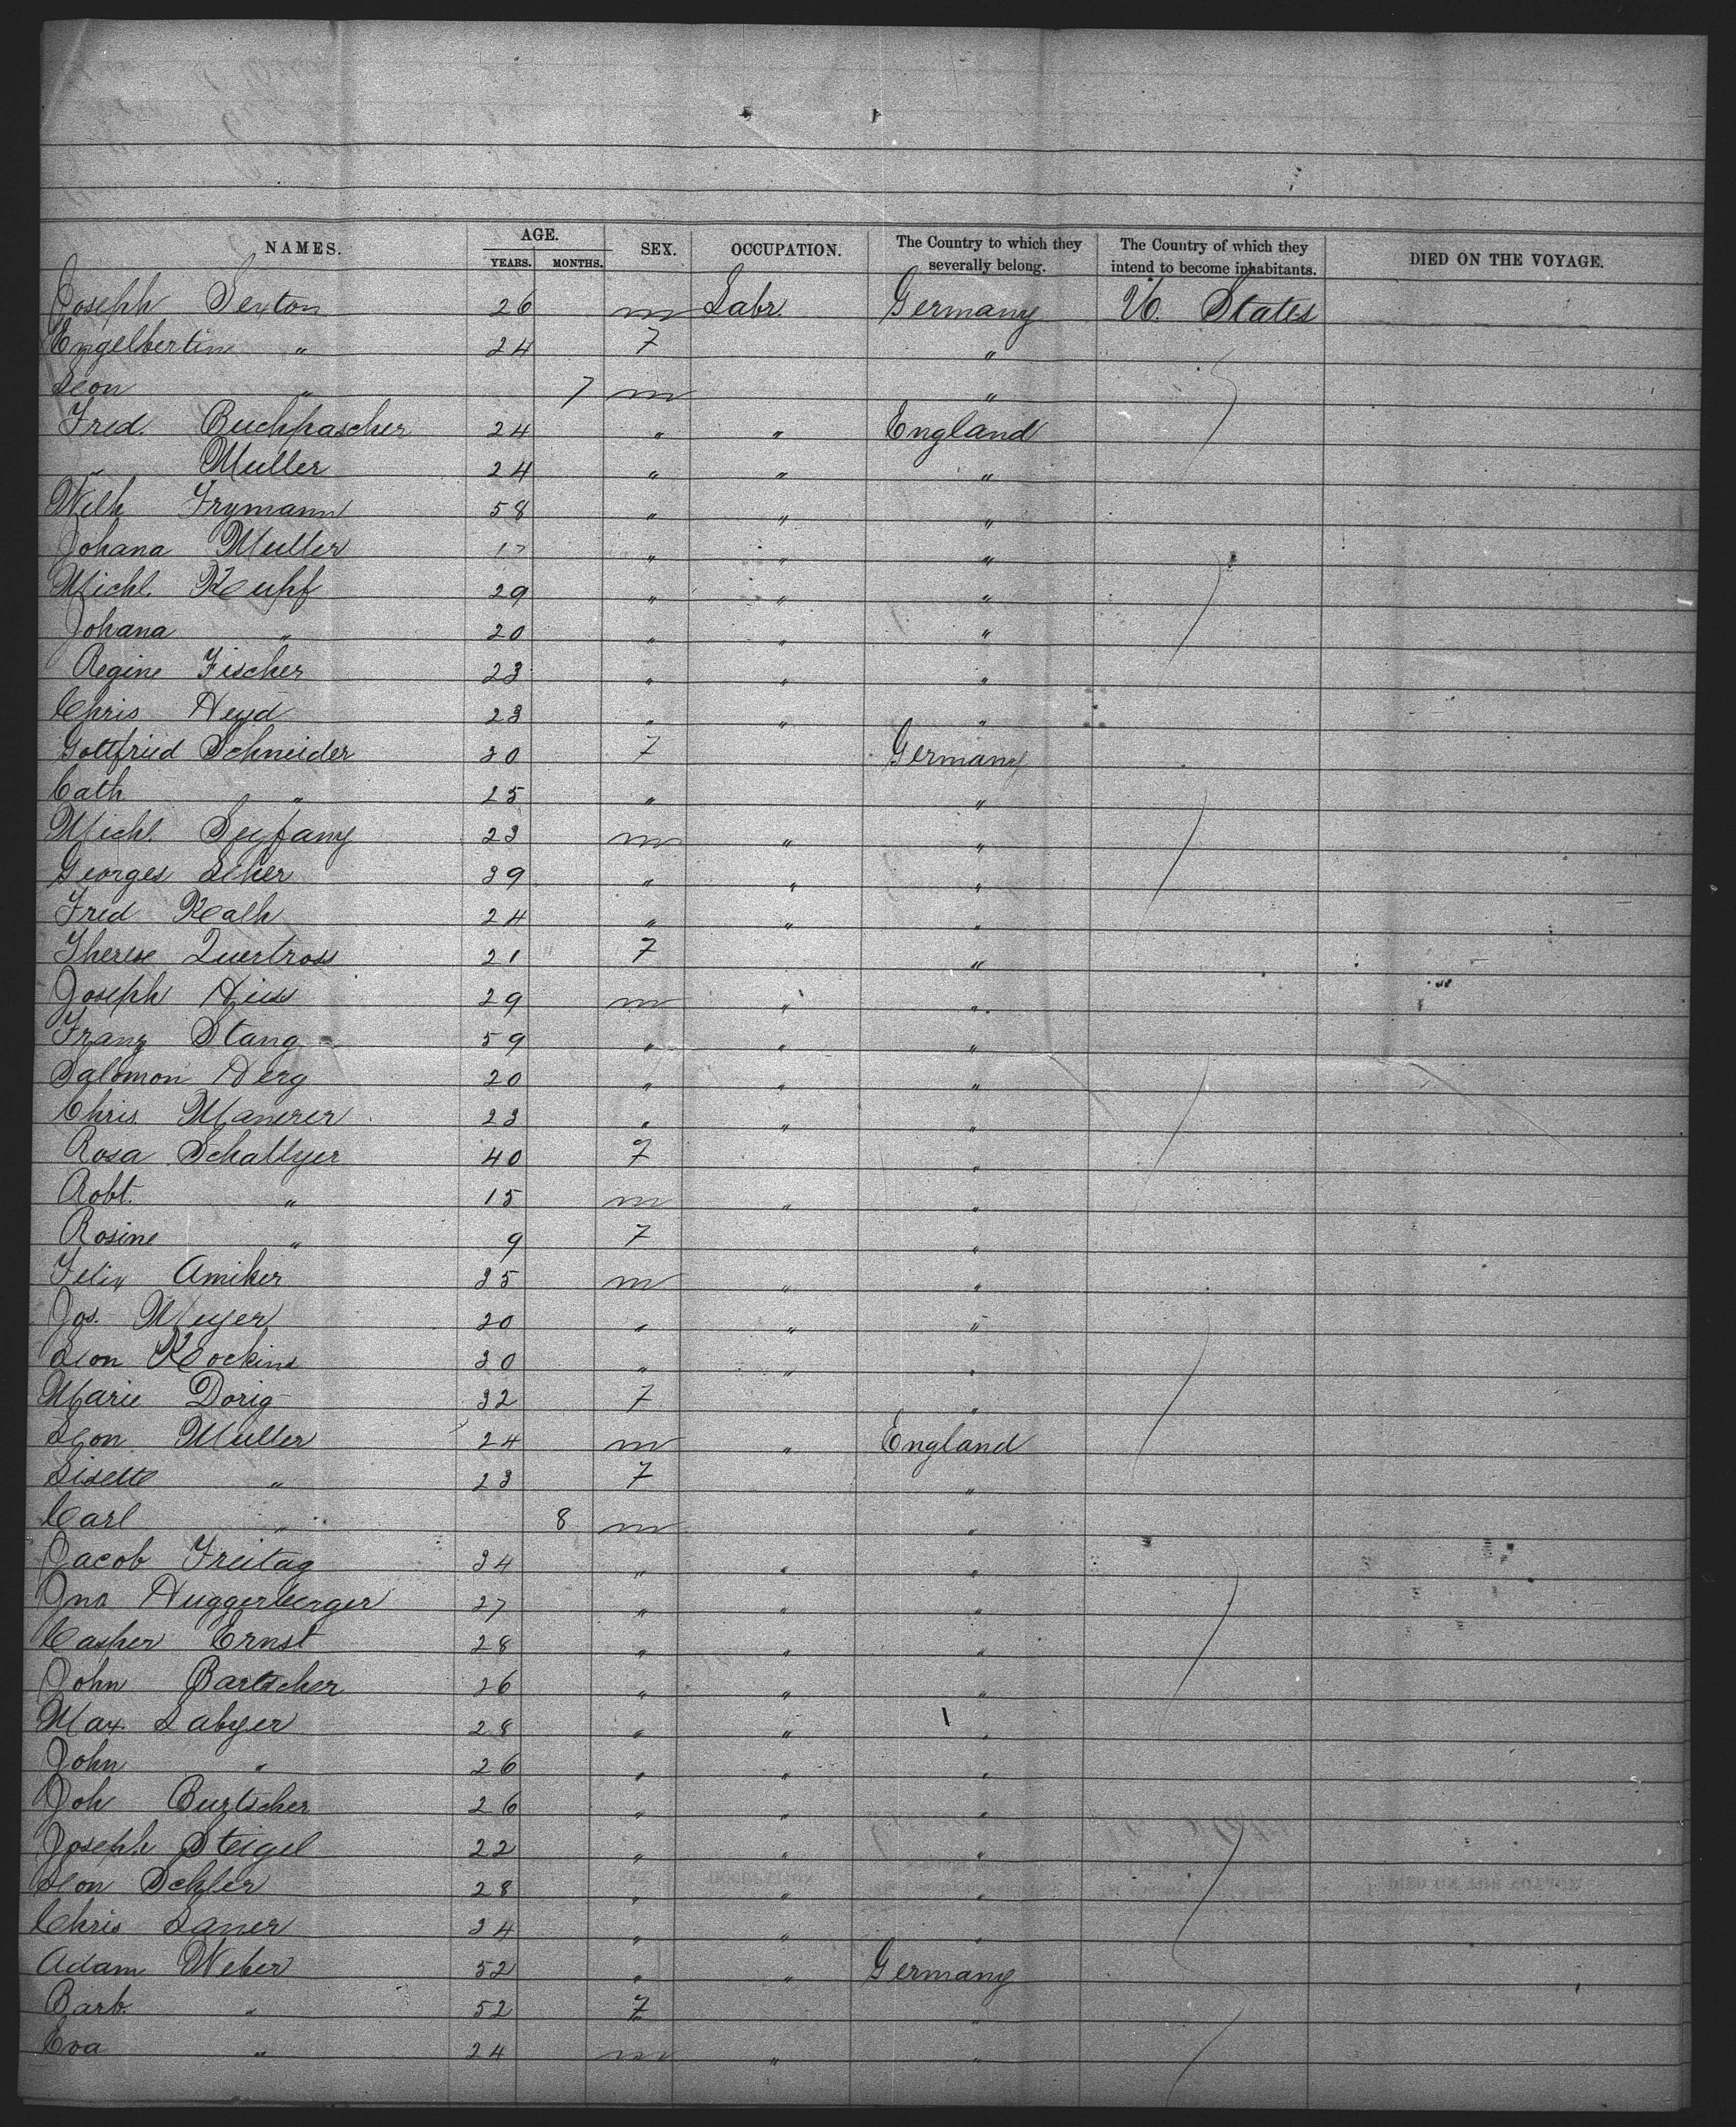 NAMES. AGE. SEX. OCCUPATION. The Country to which they severally belong. The Country of which they intend to become inhabitants. DIED ON THE VOYAGE.
YEARS. MONTHS.
Joseph Sexton 26 m Labr. Germany U. States
Engelbertin " 24 F "
Leon " 7 m "
Fred. Buchpascher 24 " " England
" Muller 24 " " "
Wilh Frymann 58 " " "
Johana Muller 17 " " "
Michl. Kupf 29 " " "
Johana " 20 " " "
Regine Fischer 23 " " "
Chris Heyd 23 " " "
Gottfried Schneider 30 F Germany
Cath " 25 " "
Michl. Seyfany 23 m " "
Georges Scher 39 " " "
Fred Kalh 24 " " "
Therese Quertross 21 F "
Joseph Hiss 29 m " "
Franz Stang 59 " " "
Salomon Herg 20 " " "
Chris. Manerer 23 " " "
Rosa Schallyer 40 F "
Robt. " 15 m " "
Rosine " 9 F "
Felix Amiker 35 m " "
Jos. Meyer 20 " " "
Leon Kockins 30 " " "
Marie Dorig 32 F "
Leon Muller 24 m " England
Lisette " 23 F "
Carl " 8 m "
Jacob Freitag 34 " " "
Jno Huggerberger 27 " " "
Casper Ernst 28 " " "
John Bartscher 26 " " "
Max. Labyer 28 " " "
John " 26 " " "
Joh Burtscher 26 " " "
Joseph Steigel 22 " " "
Leon Schler 28 " " "
Chris Laner 34 " " "
Adam Weber 52 " " Germany
Barb. " 52 F "
Eva " 24 m " "